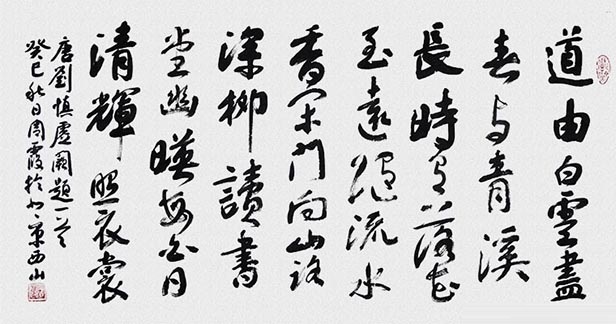 道由白雲盡
春与青溪
長時有落花
至遠隨流水
香閑門向山路
深柳讀書
堂幽暎每白日
清輝照衣裳
唐劉慎虛闕題一首
癸巳秋日周霞於北京西山